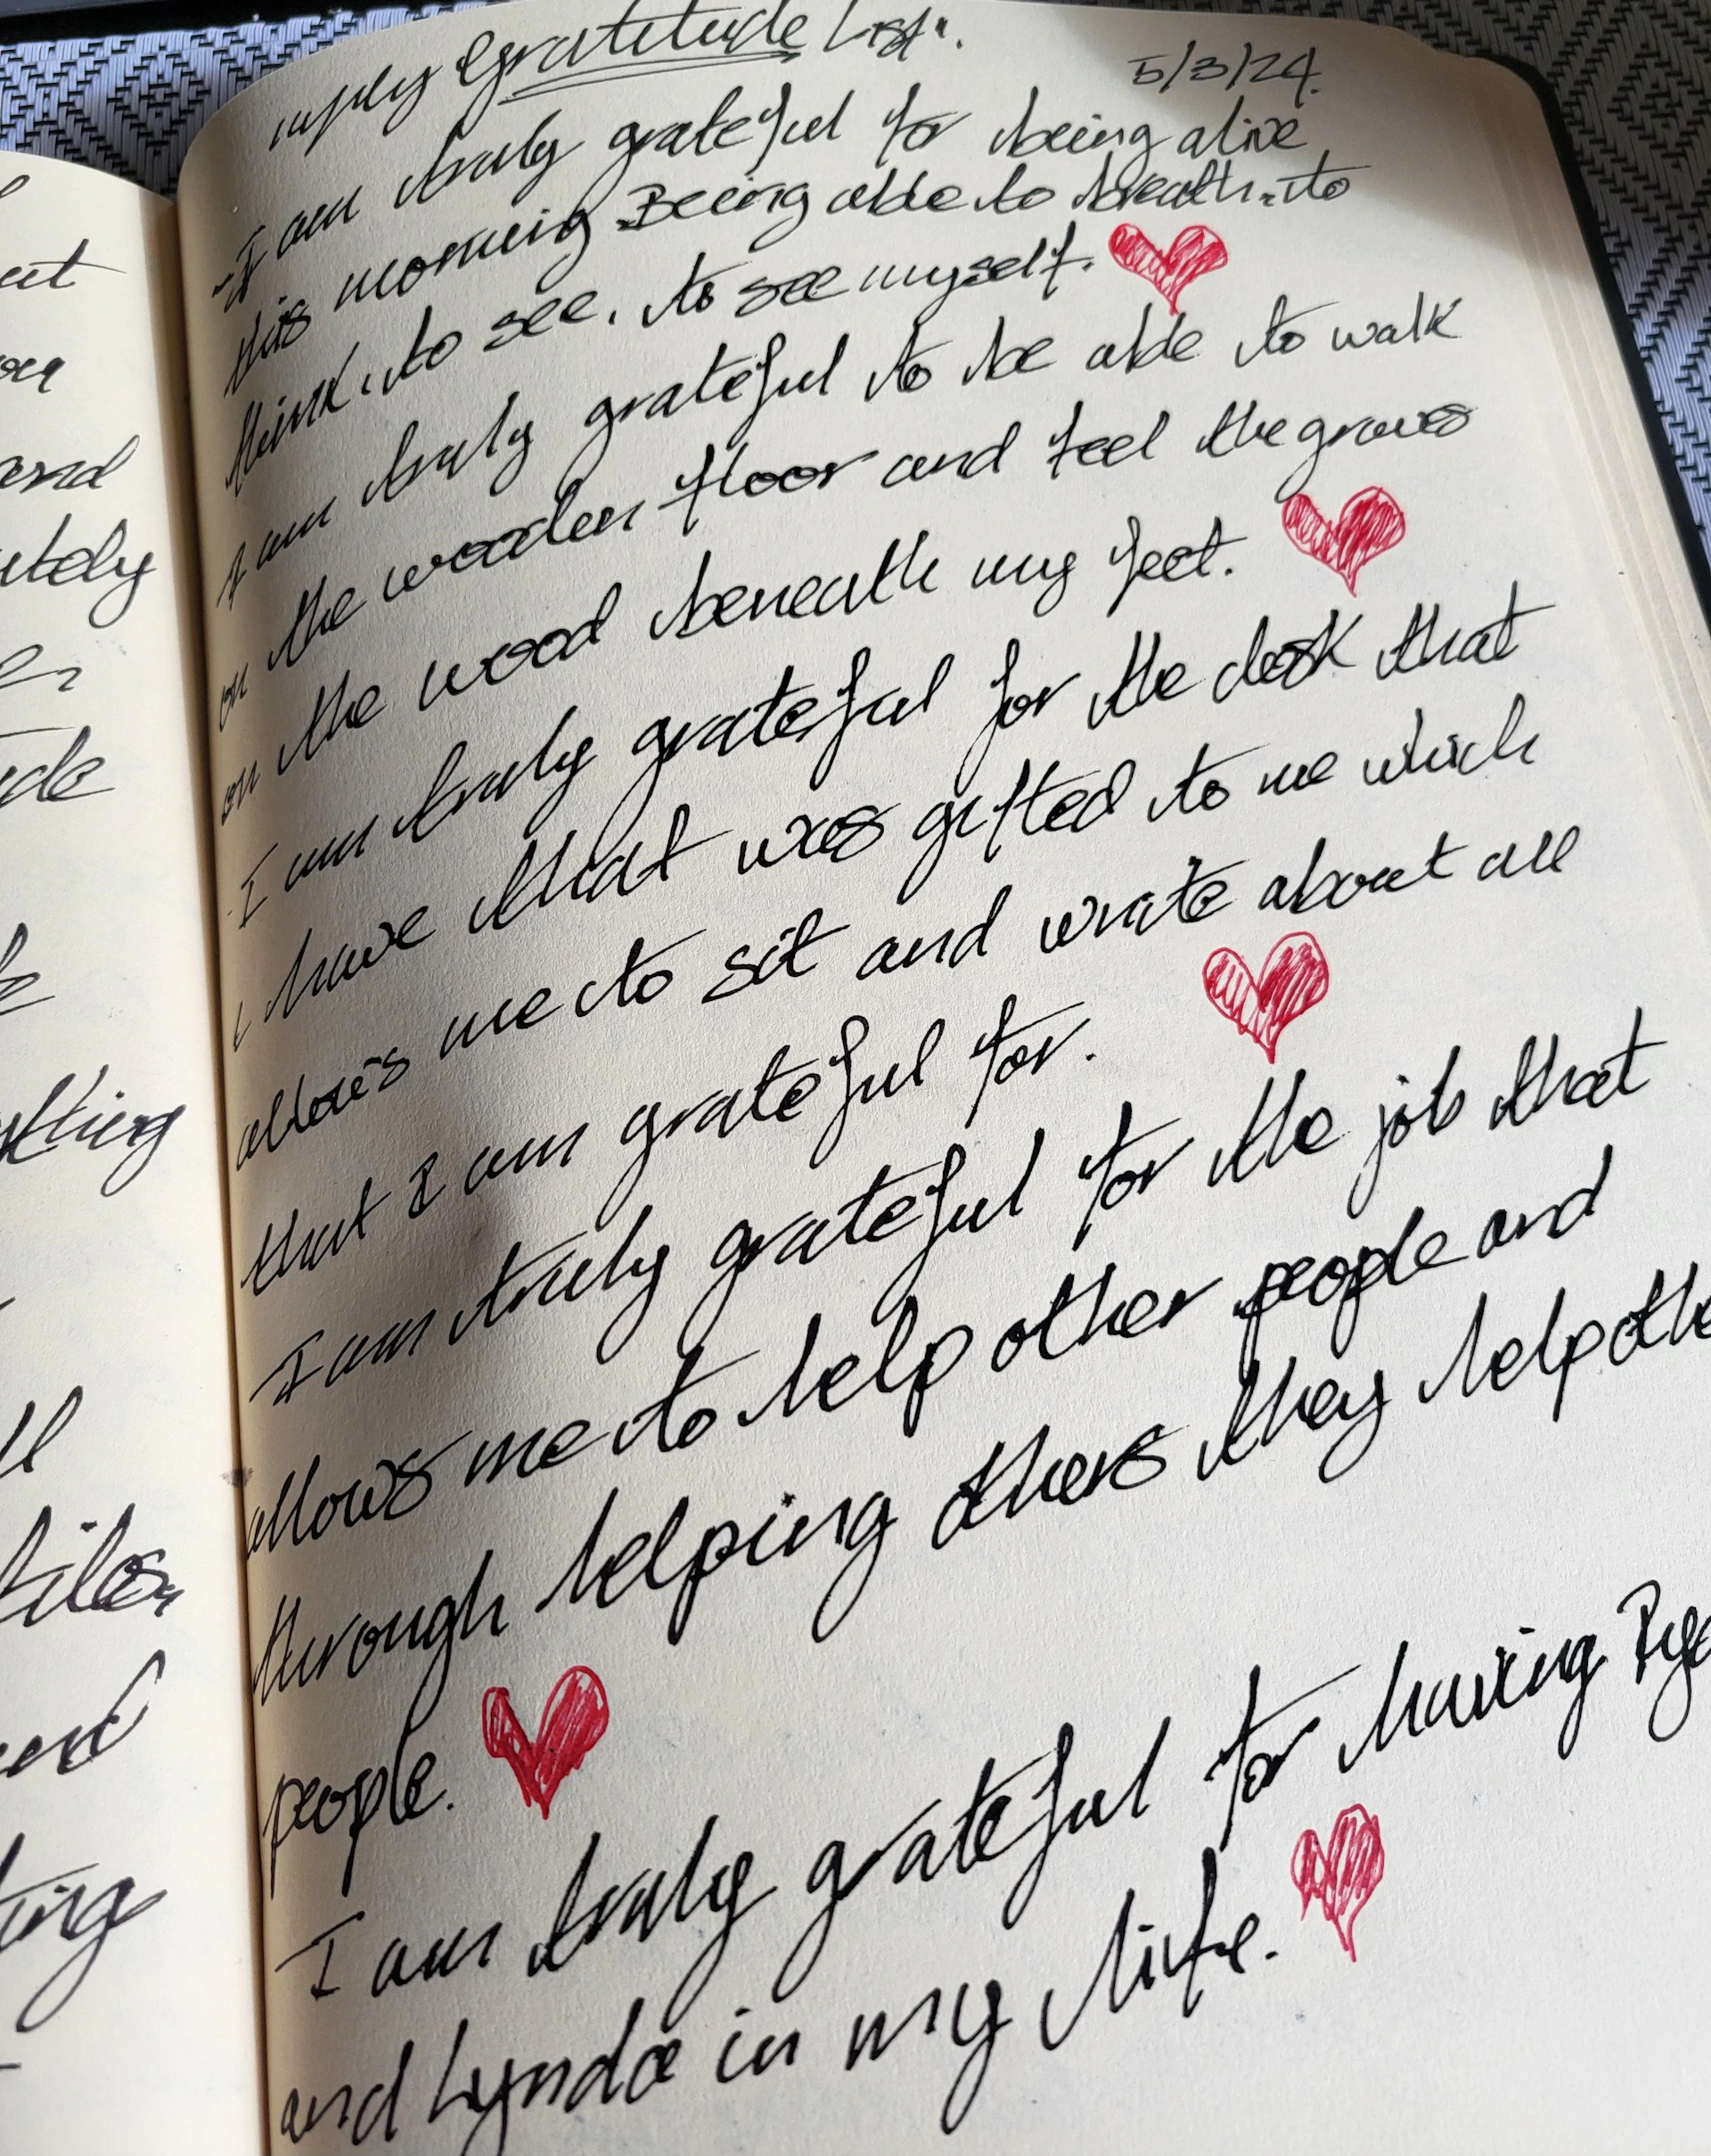 Gratitude List.
5/3/24.
I am truly grateful for being alive
this morning Being able to breath. to
think, to see, to see myself.
I am truly grateful to be able to walk
on the wooden floor and feel the groves
on the wood beneath my feet.
I am truly grateful for the desk that
I have that was gifted to me which
allows me to sit and write about all
that I am grateful for.
I am truly grateful for the job that
allows me to help other people and
through helping others they help othe
people.
I am truly grateful for having
and Lynda in my life.